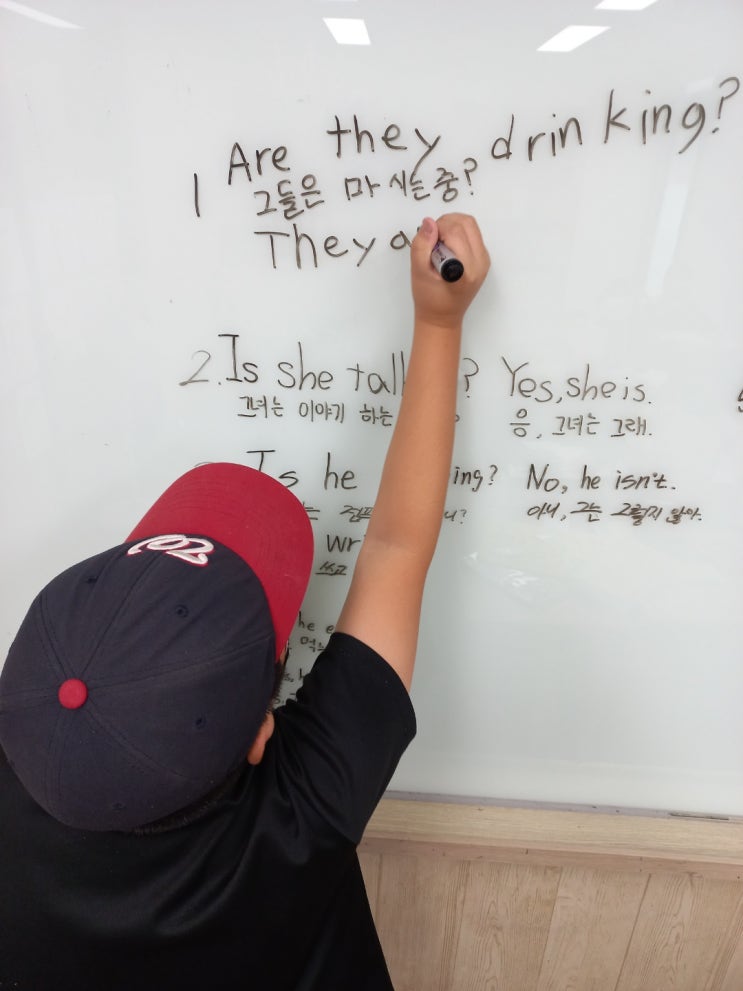 1 Are they drinking?
그들은 마시는중?
They a
2. Is she tal ? Yes, she is.
그녀는 이야기 하는 응, 그녀는 그래.
Is he ing? No, he isn't.
는 아니, 그는 그렇지 않아.
wr
쓰고
he e